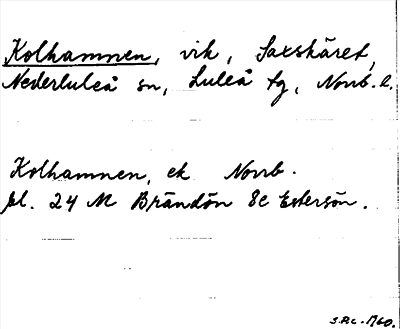 Kolhamnen, vik, Saxskäret,
Nederluleå sn, Luleå tg, Norrb. l.
Kolhamnen, ek Norrb.
bl. 24 M Brändön 8c Estersön.